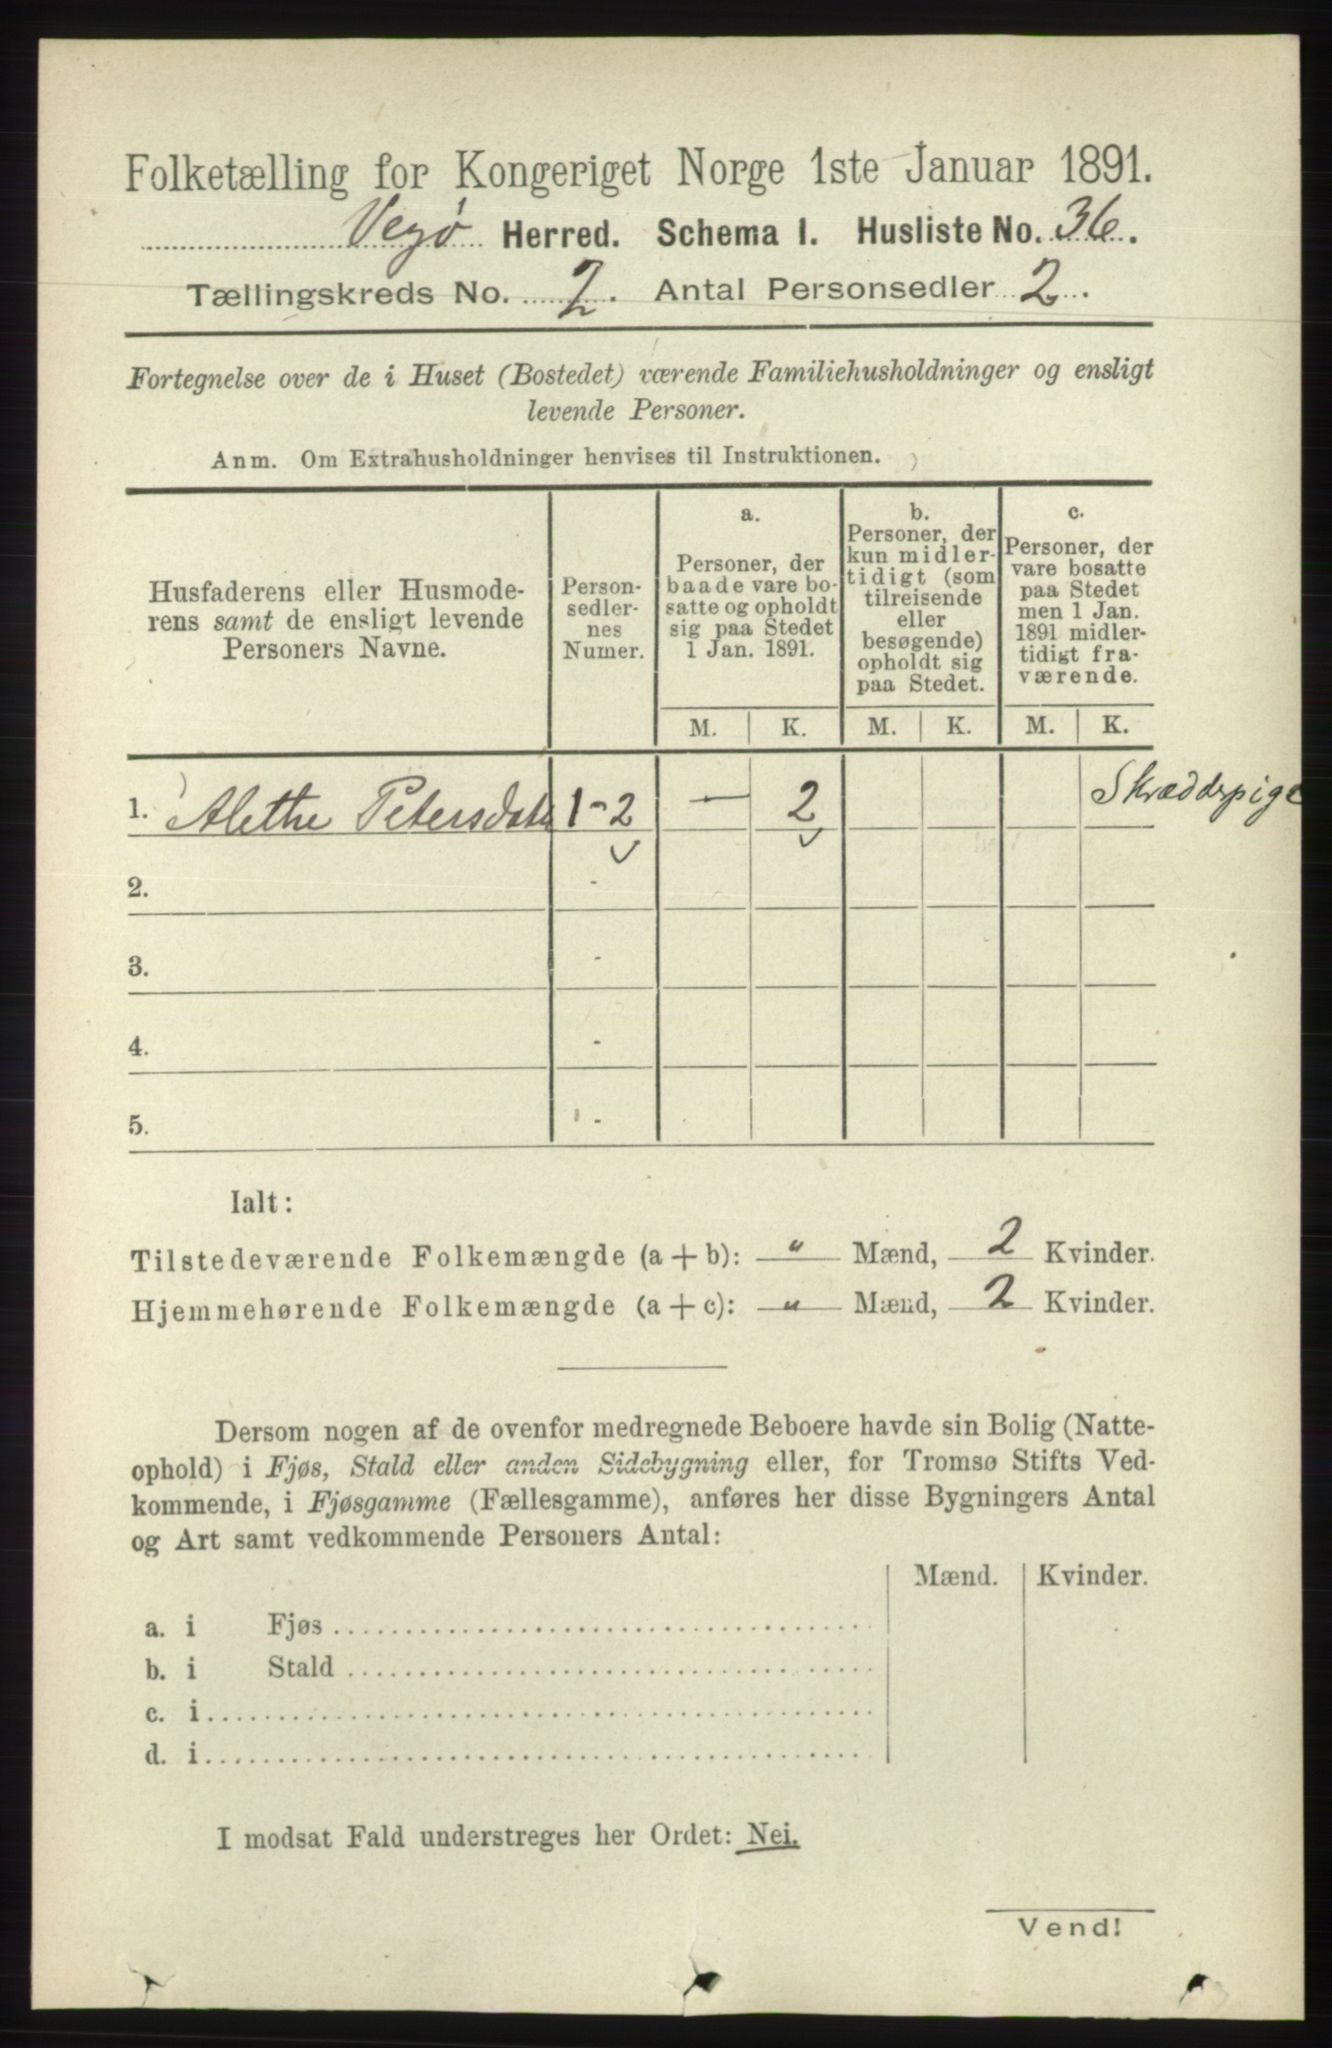 Folketælling for Kongeriget Norge 1ste Januar 1891.
Vegø Herred. Schema I. Husliste No. 36.
Tællingskreds No. 2. Antal Personsedler 2.
Fortegnelse over de i Huset (Bostedet) værende Familiehusholdninger og ensligt
levende Personer.
Anm. Om Extrahusholdninger henvises til Instruktionen.
Husfaderens eller Husmode-
rens samt de ensligt levende
Personers Navne.
Person-
sedler-
nes
Numer.
a.
Personer, der
baade vare bo-
satte og opholdt
sig paa Stedet
1 Jan. 1891.
b.
Personer, der
kun midler-
tidigt (som
tilreisende
eller
besøgende)
opholdt sig
paa Stedet.
c.
Personer, der
vare bosatte
paa Stedet
men 1 Jan.
1891 midler-
tidigt fra-
værende.
M. K. M. K. M. K.
1. Alethe Petersdatr 1-2 — 2 Skrædderpige
2. -
3. -
4. -
5. -
Ialt:
Tilstedeværende Folkemængde (a + b): " Mænd, 2 Kvinder.
Hjemmehørende Folkemængde (a + c): " Mænd, 2 Kvinder.
Dersom nogen af de ovenfor medregnede Beboere havde sin Bolig (Natte-
ophold) i Fjøs, Stald eller anden Sidebygning eller, for Tromsø Stifts Ved-
kommende, i Fjøsgamme (Fællesgamme), anføres her disse Bygningers Antal
og Art samt vedkommende Personers Antal:
Mænd. Kvinder.
a. i Fjøs
b. i Stald
c. i
d. i
I modsat Fald understreges her Ordet: Nei.
Vend!